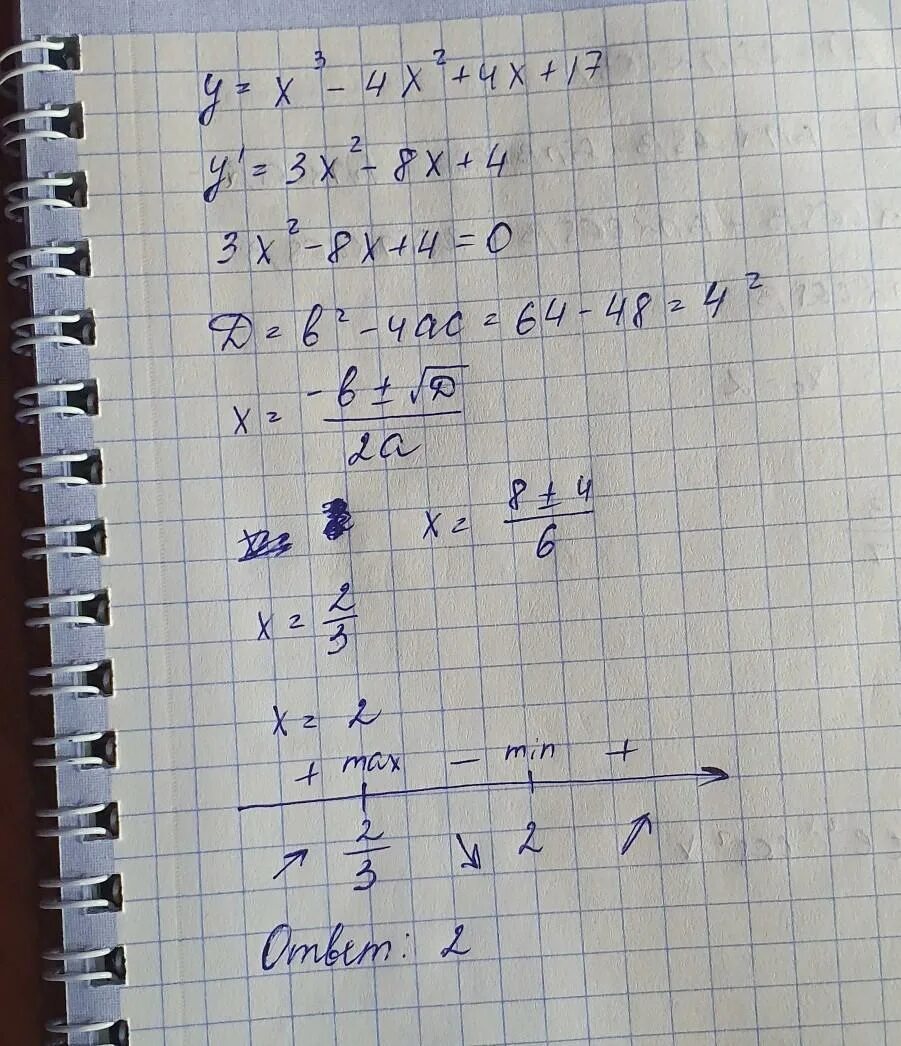 y = x³ - 4x² + 4x + 17
y' = 3x² - 8x + 4
3x² - 8x + 4 = 0
D = b² - 4ac = 64 - 48 = 4²
x = (-b ± √D) / 2a
x = (8 ± 4) / 6
x = 2/3
x = 2
+ max - min +
↗ 2/3 ↘ 2 ↗
Ответ: 2